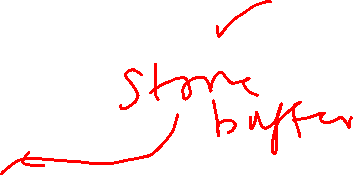 store
buffer